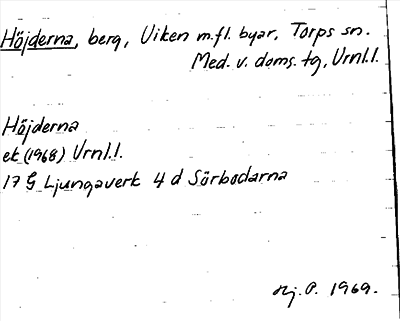 Höjderna, berg, Viken m.fl. byar, Torps sn.
Med. v. doms. tg, Vrnl.l.
Höjderna
ek (1968) Vrnl.l.
17 G Ljungaverk 4 d Sörbodarna
Hj. P. 1969.